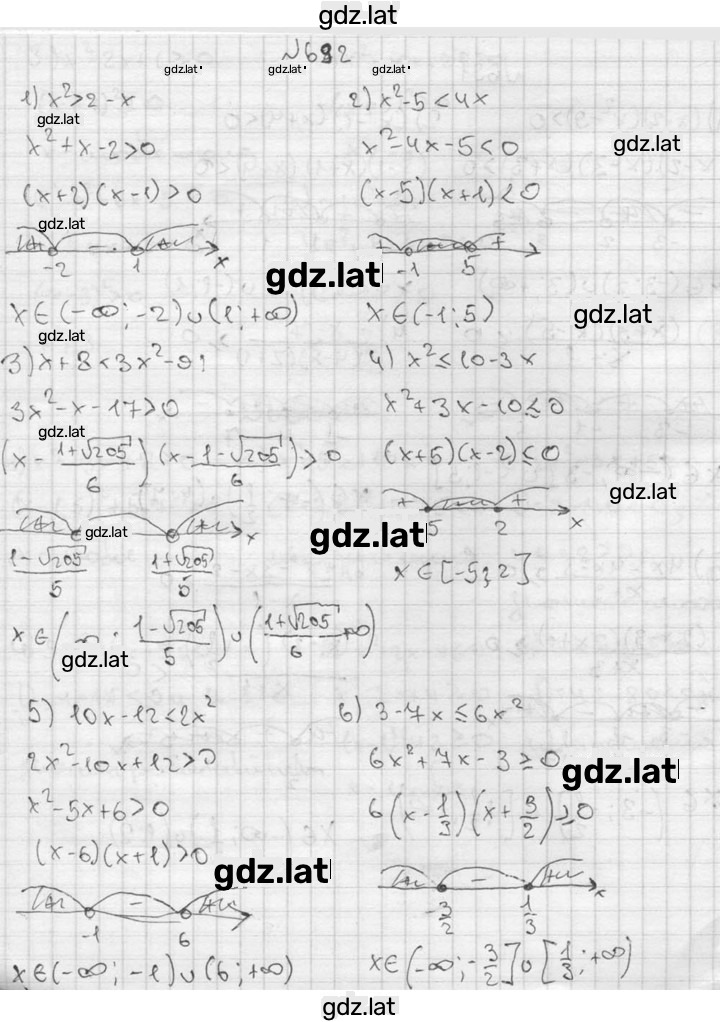 gdz.lat
№692
gdz.lat gdz.lat gdz.lat
1) x²>2-x
gdz.lat
x²+x-2>0
(x+2)(x-1)>0
gdz.lat
-2 - 1 x
x∈(-∞;-2)∪(1;+∞)
gdz.lat
2) x²-5<4x
x²-4x-5<0
gdz.lat
(x-5)(x+1)<0
+ -1 5 +
gdz.lat
x∈(-1;5)
gdz.lat
3) x+8<3x²-9;
3x²-x-17>0
gdz.lat
(x-(1+√205)/6)(x-(1-√205)/6)>0
gdz.lat
x
(1-√205)/5 (1+√205)/5
x∈( (1-√205)/5)∪((1+√205)/6 ∞)
gdz.lat
4) x²≤10-3x
x²+3x-10≤0
(x+5)(x-2)≤0
gdz.lat
+ 5 2 + x
gdz.lat
x∈[-5;2]
5) 10x-12<2x²
2x²-10x+12>0
x²-5x+6>0
(x-6)(x+1)>0
gdz.lat
-1 - 6
x∈(-∞;-1)∪(6;+∞)
6) 3-7x≤6x²
6x²+7x-3≥0
gdz.lat
6(x-1/3)(x+3/2)≥0
-3/2 - 1/3 x
x∈(-∞;-3/2]∪[1/3;+∞)
gdz.lat